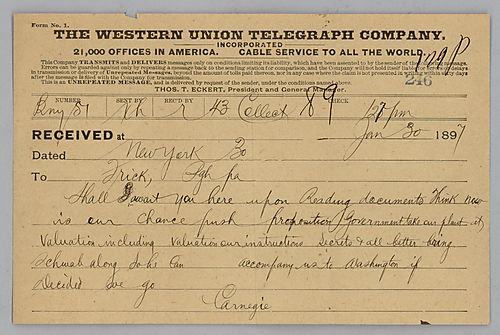 Form No. 1.
THE WESTERN UNION TELEGRAPH COMPANY.
INCORPORATED
21,000 OFFICES IN AMERICA. CABLE SERVICE TO ALL THE WORLD.
This Company TRANSMITS and DELIVERS messages only on conditions limiting its liability, which have been assented to by the sender of the following message.
Errors can be guarded against only by repeating a message back to the sending station for comparison, and the Company will not hold itself liable for errors or delays
in transmission or delivery of Unrepeated Messages, beyond the amount of tolls paid thereon, nor in any case where the claim is not presented in writing within sixty days
after the message is filed with the Company for transmission.
This is an UNREPEATED MESSAGE, and is delivered by request of the sender, under the conditions named above.
THOS. T. ECKERT, President and General Manager.
246
NUMBER SENT BY REC'D BY CHECK
43 Collect 89
RECEIVED at Jan 30 1897
Dated New York 30
To Frick, Pgh pa
Shall await you here upon Reading documents Think now
is our Chance push proposition Government take our plant at
Valuation including Valuation our instructions Secrets & all better bring
Schwab along so he Can accompany us to Washington if
decided we go
Carnegie